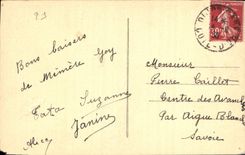 Bons baisers
de Mémère Goy
Tata Suzanne
Janine
Alice
Monsieur
Pierre Caillot
Centre des Avanch
Par Aigue Blanche
Savoie